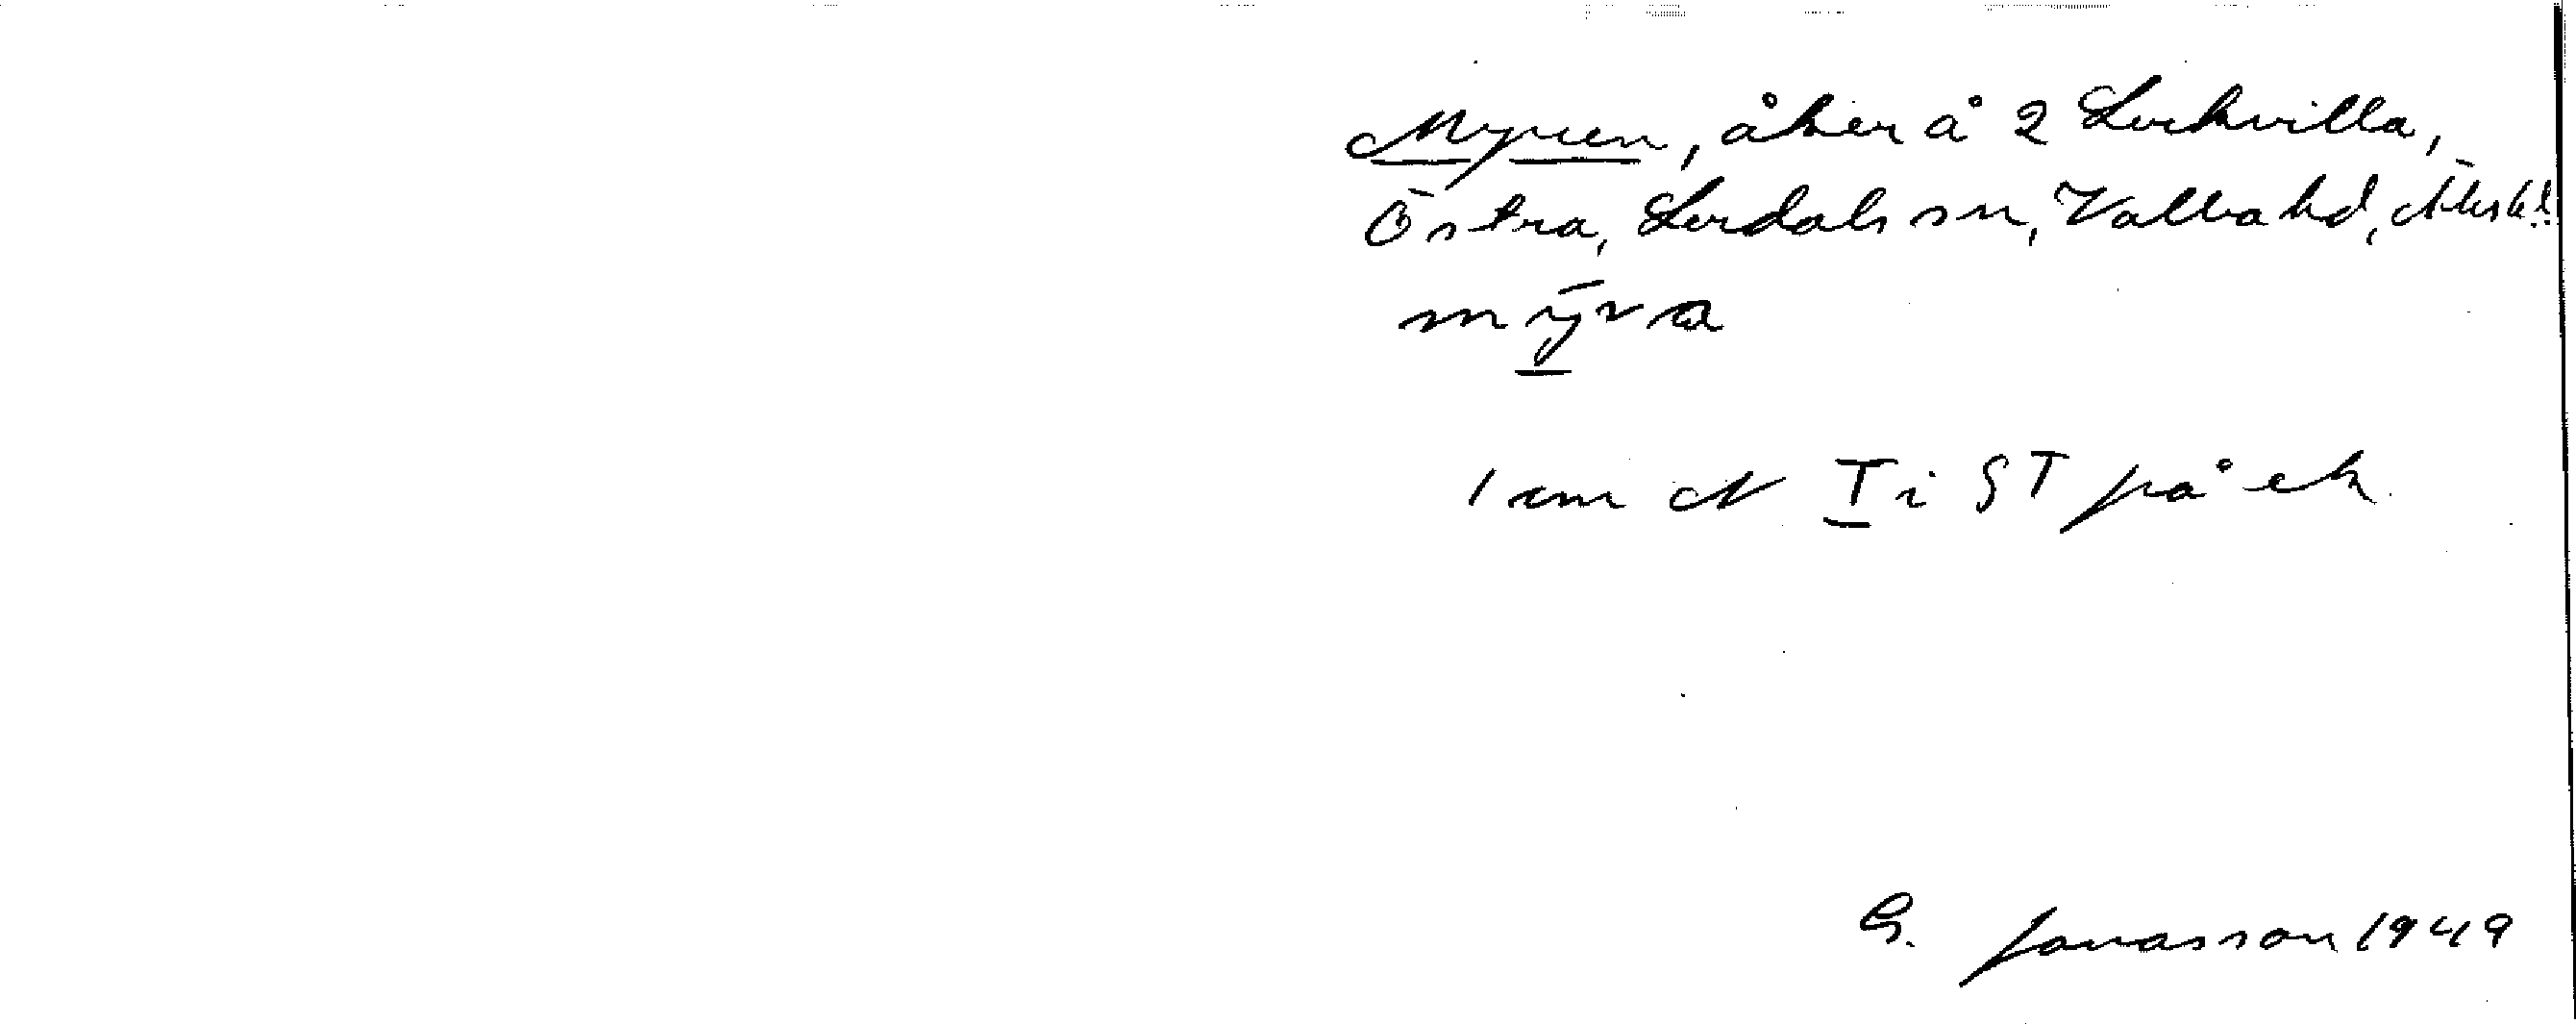 Myren, åker å 2 Lerkvilla,
Östra, Lerdals sn, Valbo hd, Älvsb!
mȳra
1 cm N T i ST på ek.
G. Jonasson 1949